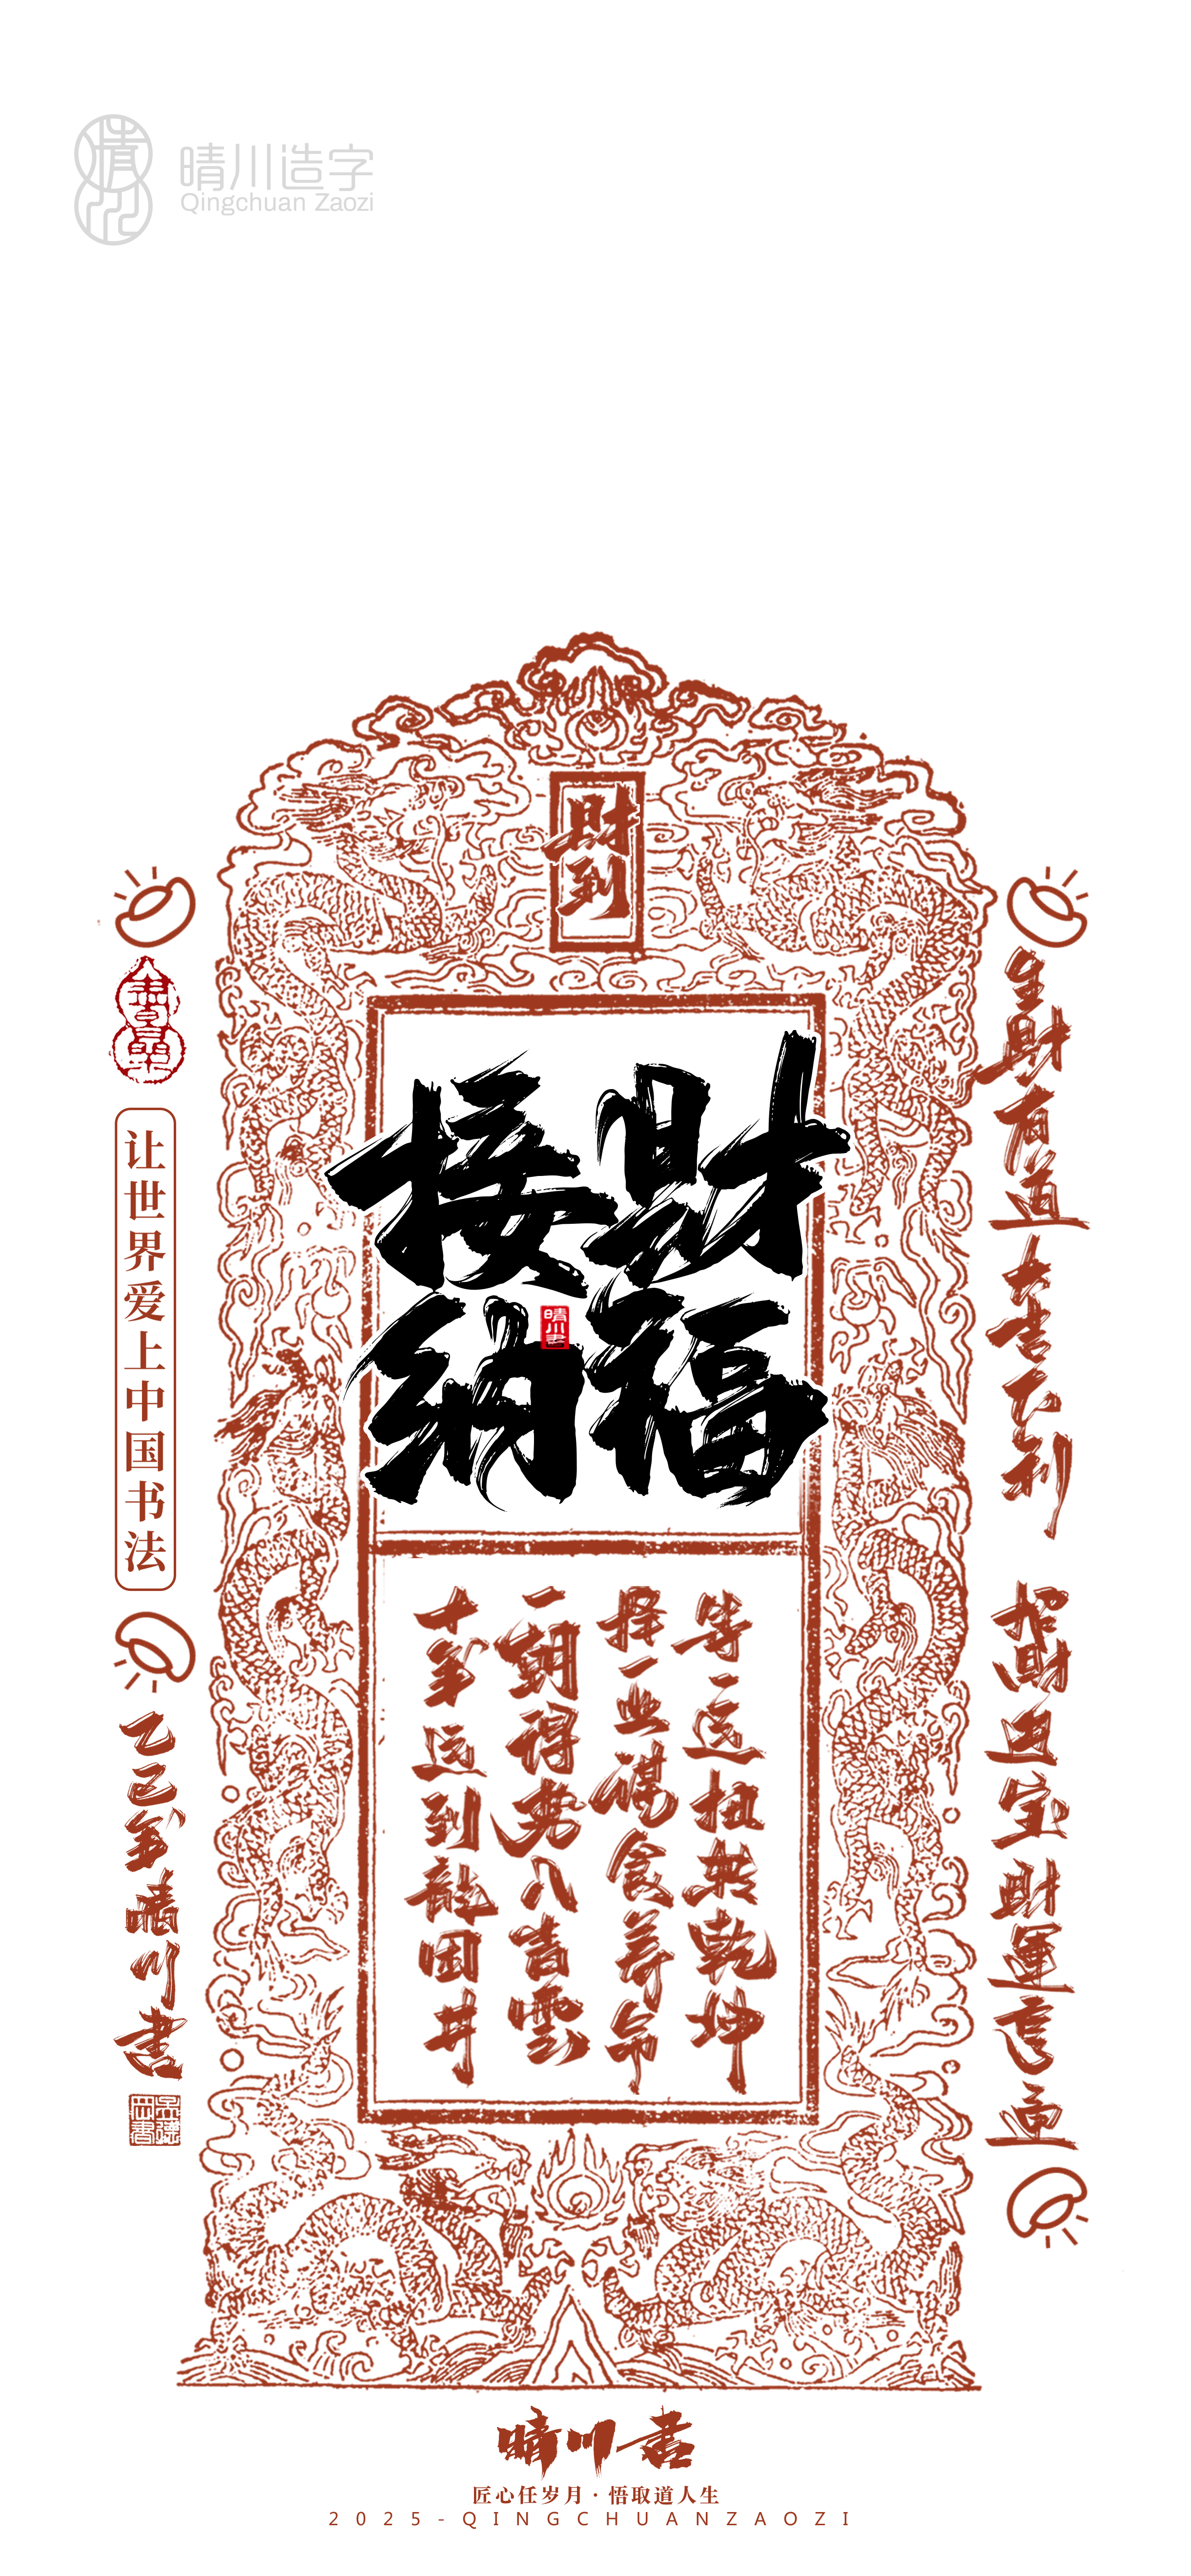 晴川造字
Qingchuan Zaozi
財到
接財
纳福
晴川書
十年运到龍困井
一朝得势入青雲
择一业谋食养命
等一运扭转乾坤
生財有道大吉大利
招財进宝財運亨通
让世界爱上中国书法
乙巳年晴川书
晴川书
匠心任岁月·悟取道人生
2025-QINGCHUANZAOZI